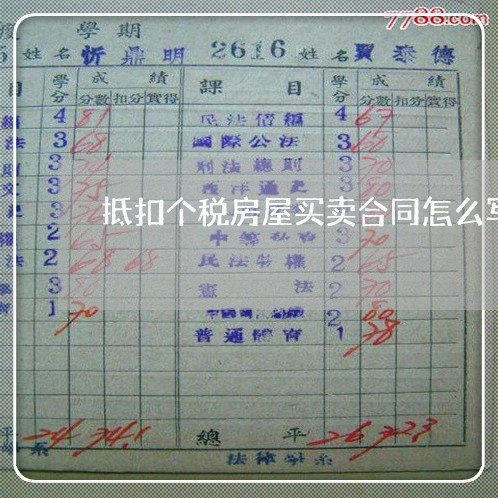 7788.com
學期
5 姓名 忻鼎明 2616 姓名 賈泰德
目 學分 成績 課目 學分 成績
分數 扣分 實得 分數 扣分 實得
4 81 民法債編 4 67
法 3 68 國際公法 3 60
3 刑法總則 3 70
文 3 75 西洋通史 3 80
抵扣个税房屋买卖合同怎么写
權 2 65 3 70
法 2 68 68 民法物權 2 65
3 80 憲法 2 70
1 70 2 80
普通體育 1 78
平 24 74.1 總平 26 72.3
系 法律學系